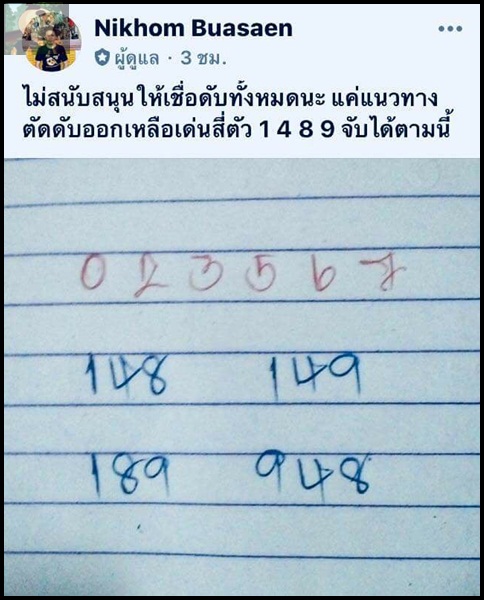 Nikhom Buasaen
ผู้ดูแล · 3 ชม.
ไม่สนับสนุนให้เชื่อดับทั้งหมดนะ แค่แนวทาง
ตัดดับออกเหลือเด่นสี่ตัว 1 4 8 9 จับได้ตามนี้
0 2 3 5 6 7
148 149
189 948